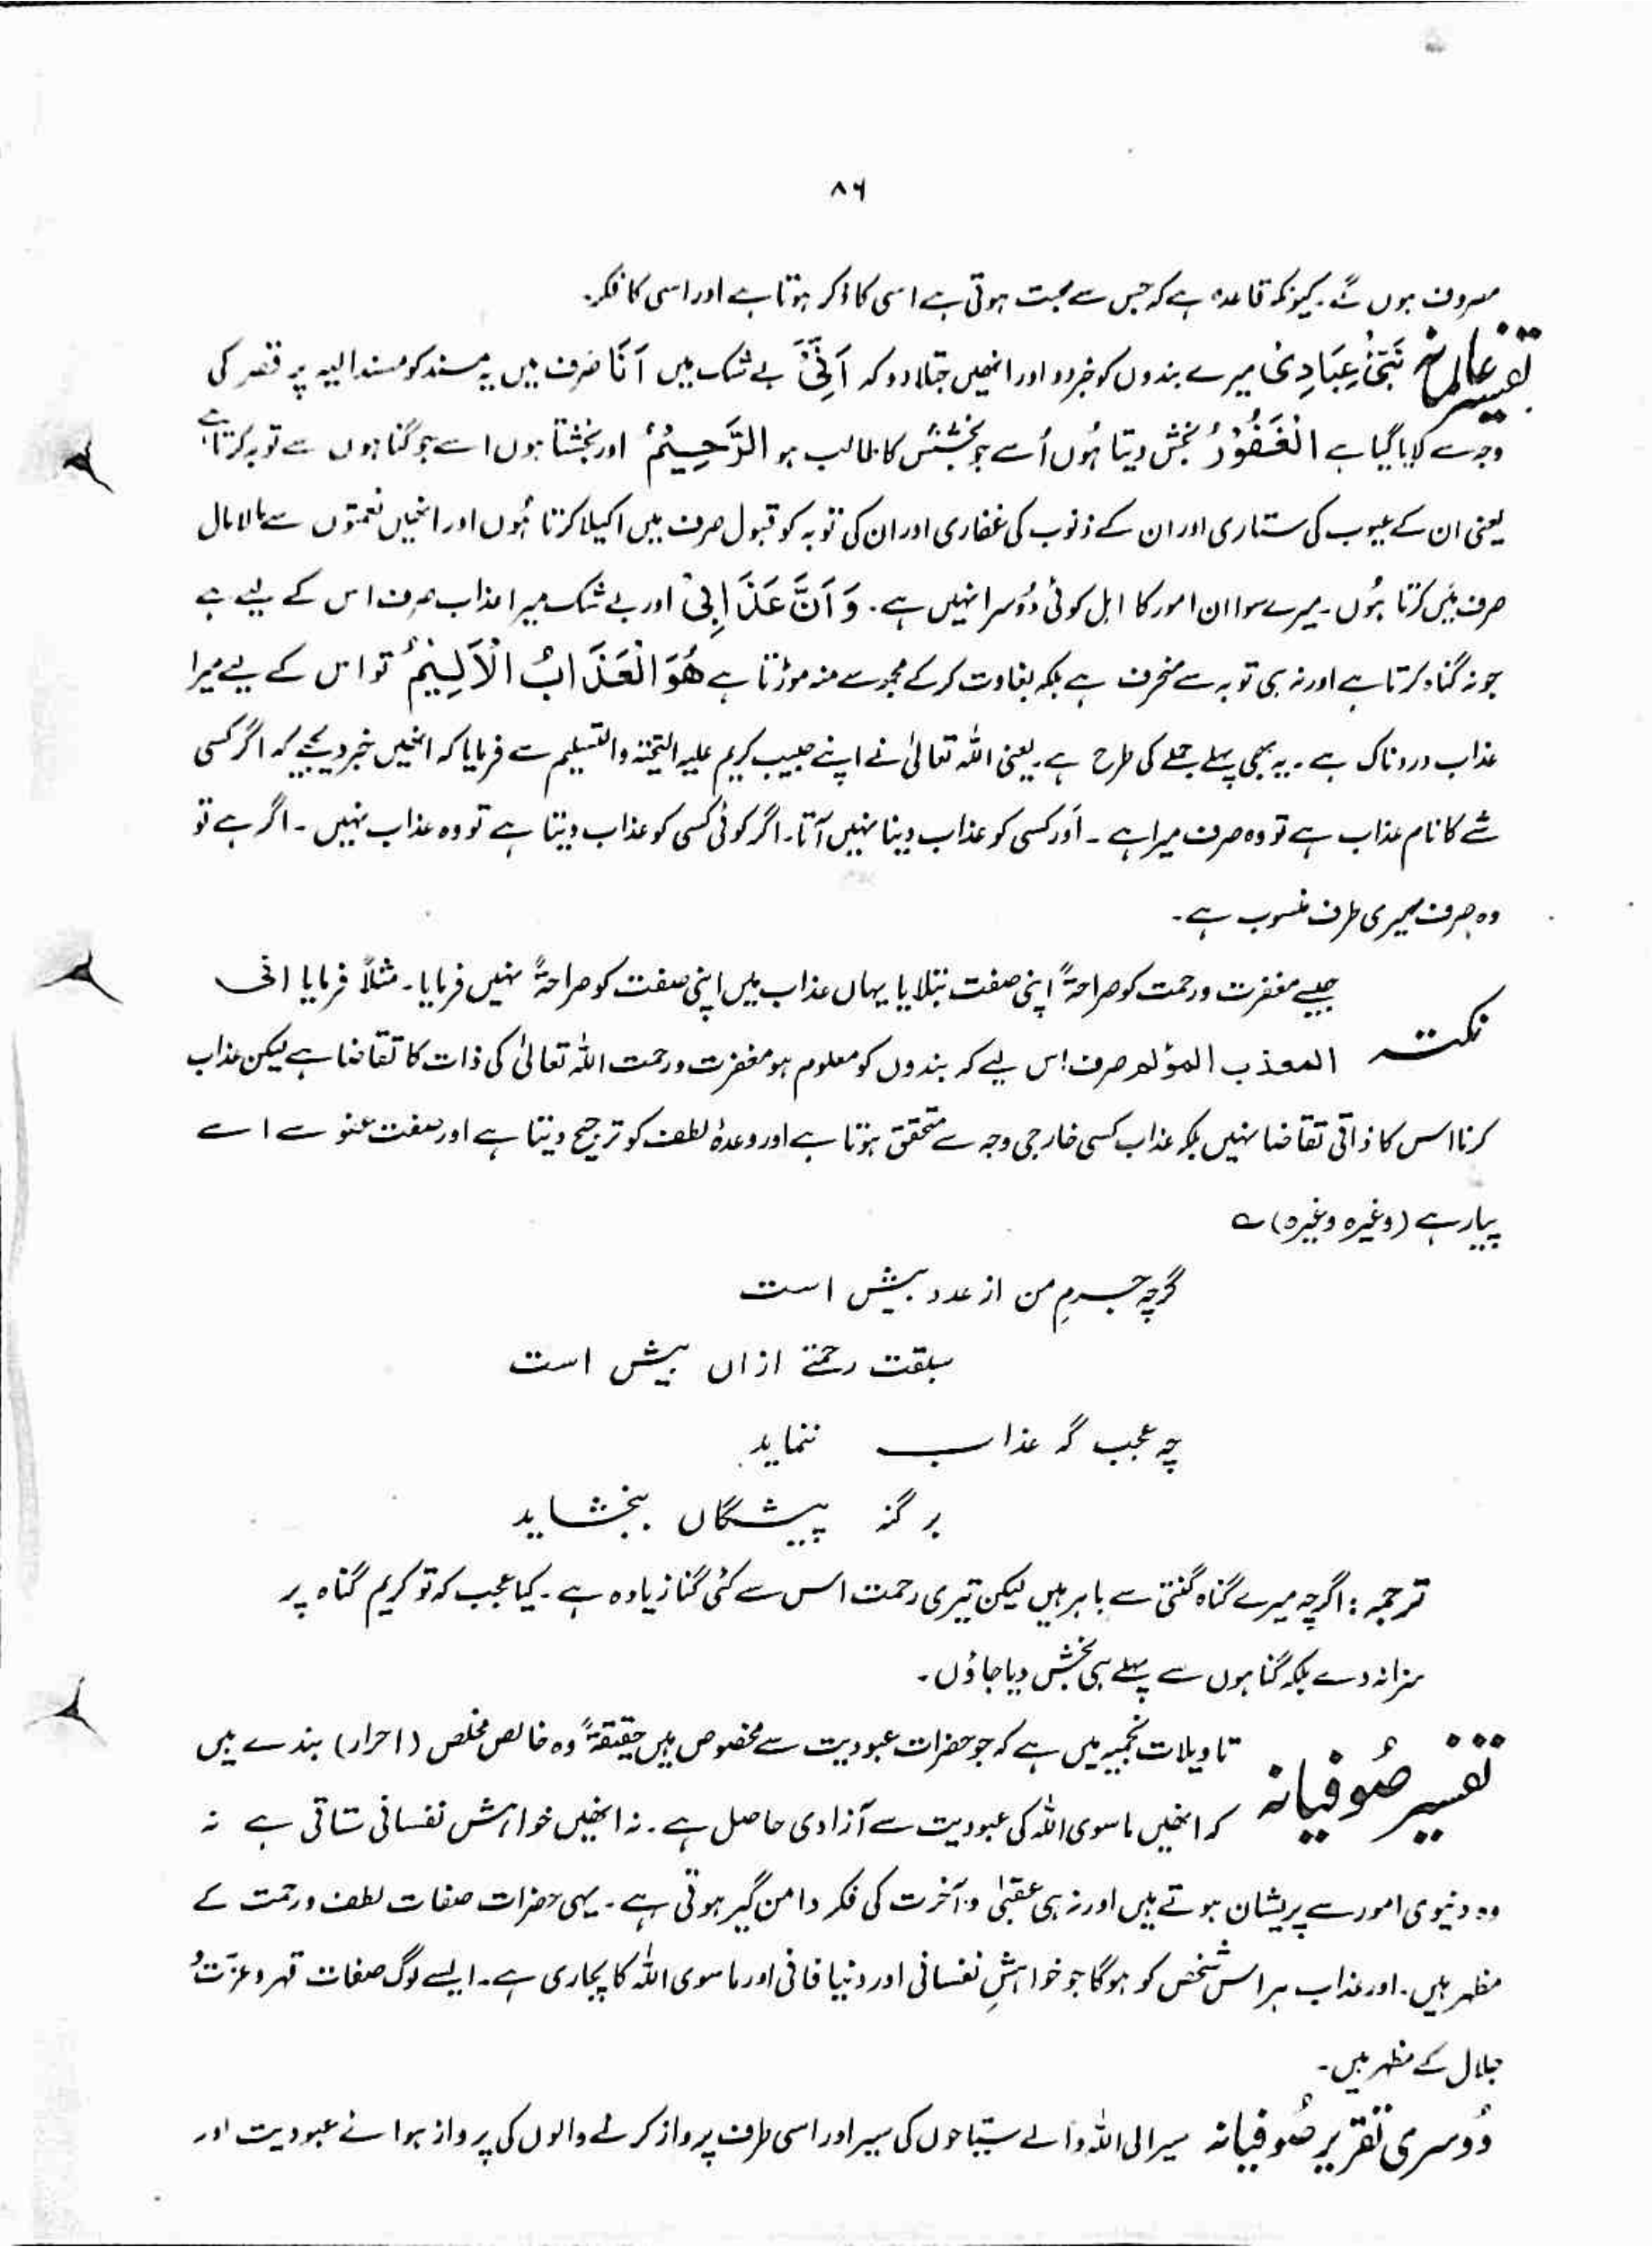 ۸۶
مصروف ہوں گے۔ کیونکہ قاعدہ ہے کہ جس سے محبت ہوتی ہے اسی کا ذکر ہوتا ہے اور اسی کا فکر۔
تفسیر عالمانہ نَبِّئْ عِبَادِیْ میرے بندوں کو خبر دو اور انھیں جتلا دو کہ اَنِّیْٓ بے شک میں اَنَا صرف میں یہ مسند کو مسند الیہ پر قصر کی
وجہ سے لایا گیا ہے الْغَفُوْرُ بخش دیتا ہُوں اُسے جو بخشش کا طالب ہو الرَّحِیْمُ اور بخشتا ہوں اسے جو گناہوں سے توبہ کرتا ہے
یعنی ان کے عیوب کی ستاری اور ان کے ذنوب کی غفاری اور ان کی توبہ کو قبول صرف میں اکیلا کرتا ہُوں اور انھیں نعمتوں سے مالا مال
صرف میں کرتا ہُوں۔ میرے سوا ان امور کا اہل کوئی دُوسرا نہیں ہے۔ وَ اَنَّ عَذَابِیْ اور بے شک میرا عذاب صرف اس کے لیے ہے
جو نہ گناہ کرتا ہے اور نہ ہی توبہ سے منحرف ہے بلکہ بغاوت کر کے مجھ سے منہ موڑتا ہے ھُوَ الْعَذَابُ الْاَلِیْمُ تو اس کے لیے میرا
عذاب دردناک ہے۔ یہ بھی پہلے جملے کی طرح ہے۔ یعنی اللہ تعالیٰ نے اپنے حبیب کریم علیہ التحیتہ والتسلیم سے فرمایا کہ انھیں خبر دیجئے کہ اگر کسی
شے کا نام عذاب ہے تو وہ صرف میرا ہے۔ اَور کسی کو عذاب دینا نہیں آتا۔ اگر کوئی کسی کو عذاب دیتا ہے تو وہ عذاب نہیں۔ اگر ہے تو
وہ صرف میری طرف منسوب ہے۔
نکتہ جیسے مغفرت و رحمت کو صراحۃً اپنی صفت بتلایا یہاں عذاب میں اپنی صفت کو صراحۃً نہیں فرمایا۔ مثلاً فرمایا انی
المعذب المؤلم صرف اس لیے کہ بندوں کو معلوم ہو مغفرت و رحمت اللہ تعالیٰ کی ذات کا تقاضا ہے لیکن عذاب
کرنا اس کا ذاتی تقاضا نہیں بلکہ عذاب کسی خارجی وجہ سے متحقق ہوتا ہے اور وعدۂ لطف کو ترجیح دیتا ہے اور صفت عفو سے اسے
پیار ہے (وغیرہ وغیرہ) ؎
گرچہ جرمِ من از عدد بیش است
سبقت رحمتے ازاں بیش است
چہ عجب گر عذاب ننماید
بر گنہ پیشگاں ببخشاید
ترجمہ: اگرچہ میرے گناہ گنتی سے باہر ہیں لیکن تیری رحمت اس سے کئی گنا زیادہ ہے۔ کیا عجب کہ تو کریم گناہ پر
سزا نہ دے بلکہ گناہوں سے پہلے ہی بخش دیا جاؤں۔
تفسیر صُوفیانہ تاویلات نجمیہ میں ہے کہ جو حضرات عبودیت سے مخصوص ہیں حقیقۃً وہ خالص مخلص (احرار) بندے ہیں
کہ انھیں ماسوی اللہ کی عبودیت سے آزادی حاصل ہے۔ نہ انھیں خواہش نفسانی ستاتی ہے نہ
وہ دنیوی امور سے پریشان ہوتے ہیں اور نہ ہی عقبیٰ و آخرت کی فکر دامن گیر ہوتی ہے۔ یہی حضرات صفات لطف و رحمت کے
مظہر ہیں۔ اور عذاب ہر اس شخص کو ہوگا جو خواہشِ نفسانی اور دنیا فانی اور ماسوی اللہ کا پجاری ہے۔ ایسے لوگ صفات قہر و عزّت و
جلال کے مظہر ہیں۔
دُوسری تقریر صُوفیانہ سیر الی اللہ والے سیّاحوں کی سیر اور اسی طرف پرواز کرنے والوں کی پرواز ہوائے عبودیت اور